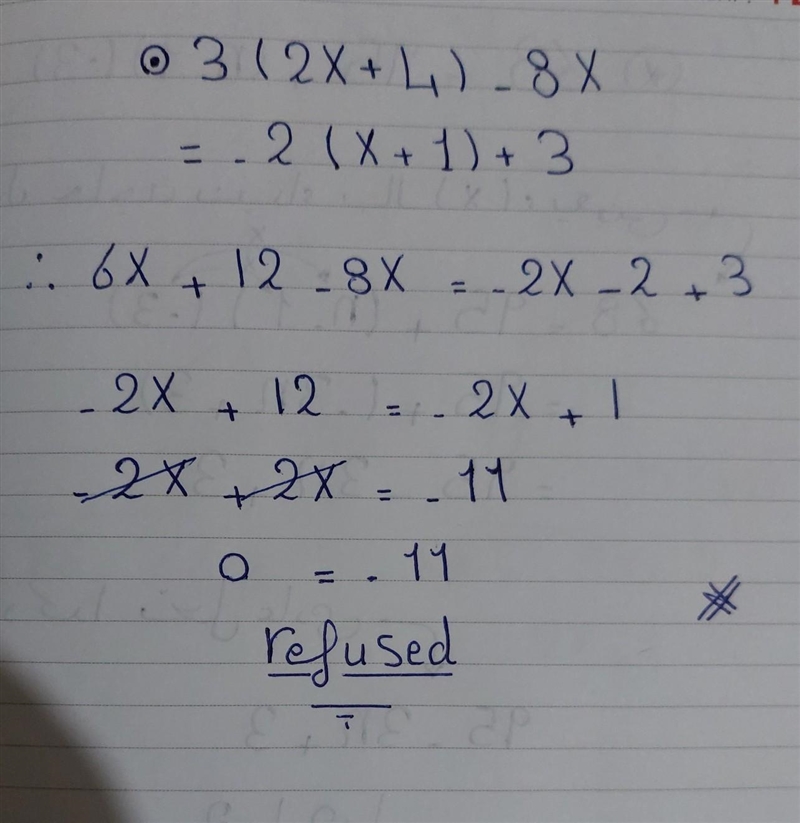 ⊙ 3 (2X + 4) - 8X
= - 2 (X + 1) + 3
∴ 6X + 12 - 8X = - 2X - 2 + 3
- 2X + 12 = - 2X + 1
- 2X + 2X = - 11
0 = - 11
refused